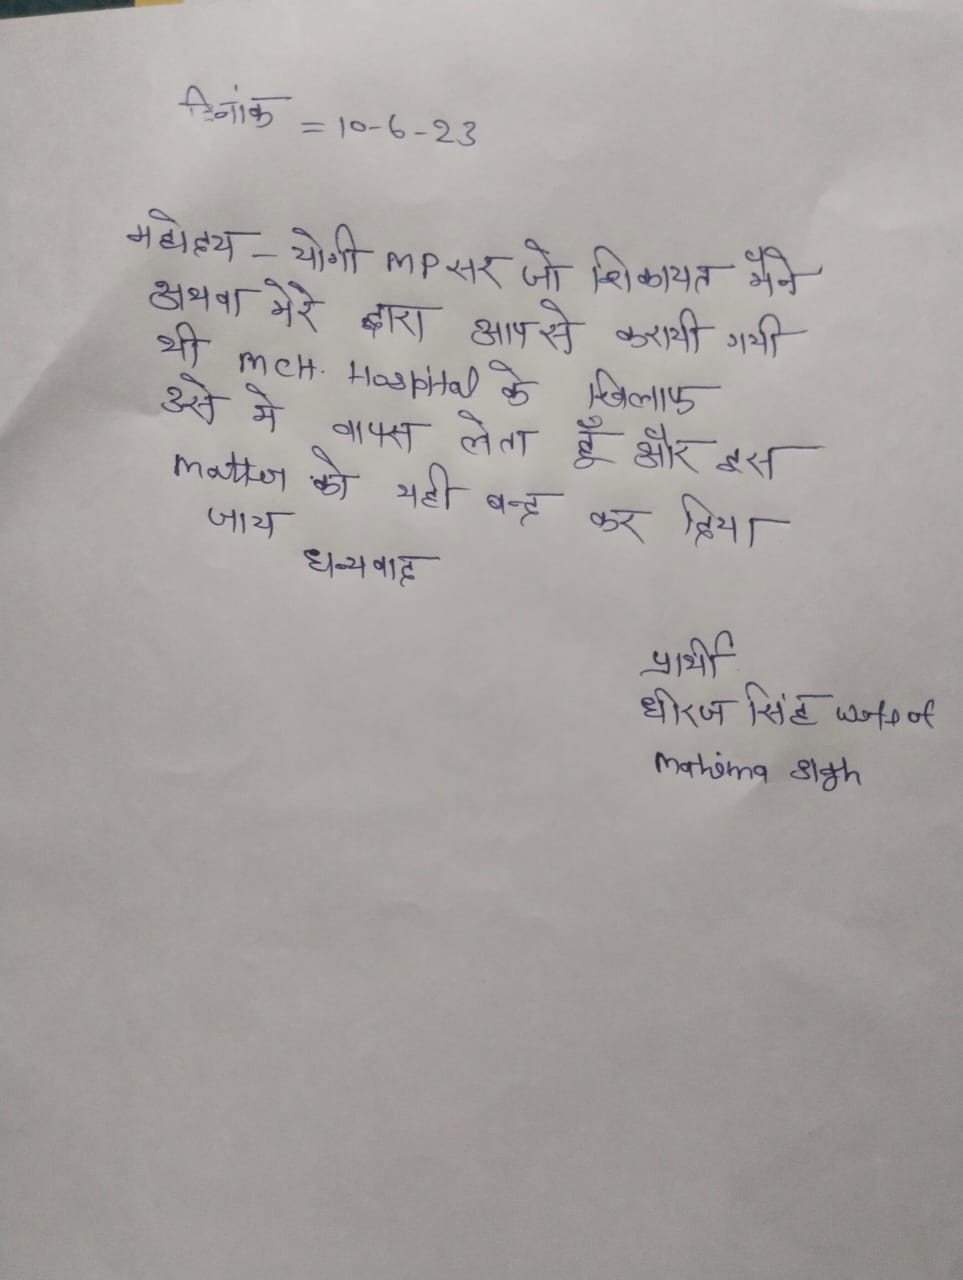 दिनांक = 10-6-23
महोदय - योगी MP सर जो शिकायत मैंने
अथवा मेरे द्वारा आपसे करायी गयी
थी MCH. Hospital के खिलाफ
उसे मे वापस लेता हूँ और इस
matter को यही बन्द कर दिया
जाय
धन्यवाद
प्रार्थी
धीरज सिंह wife of
Mahima sigh